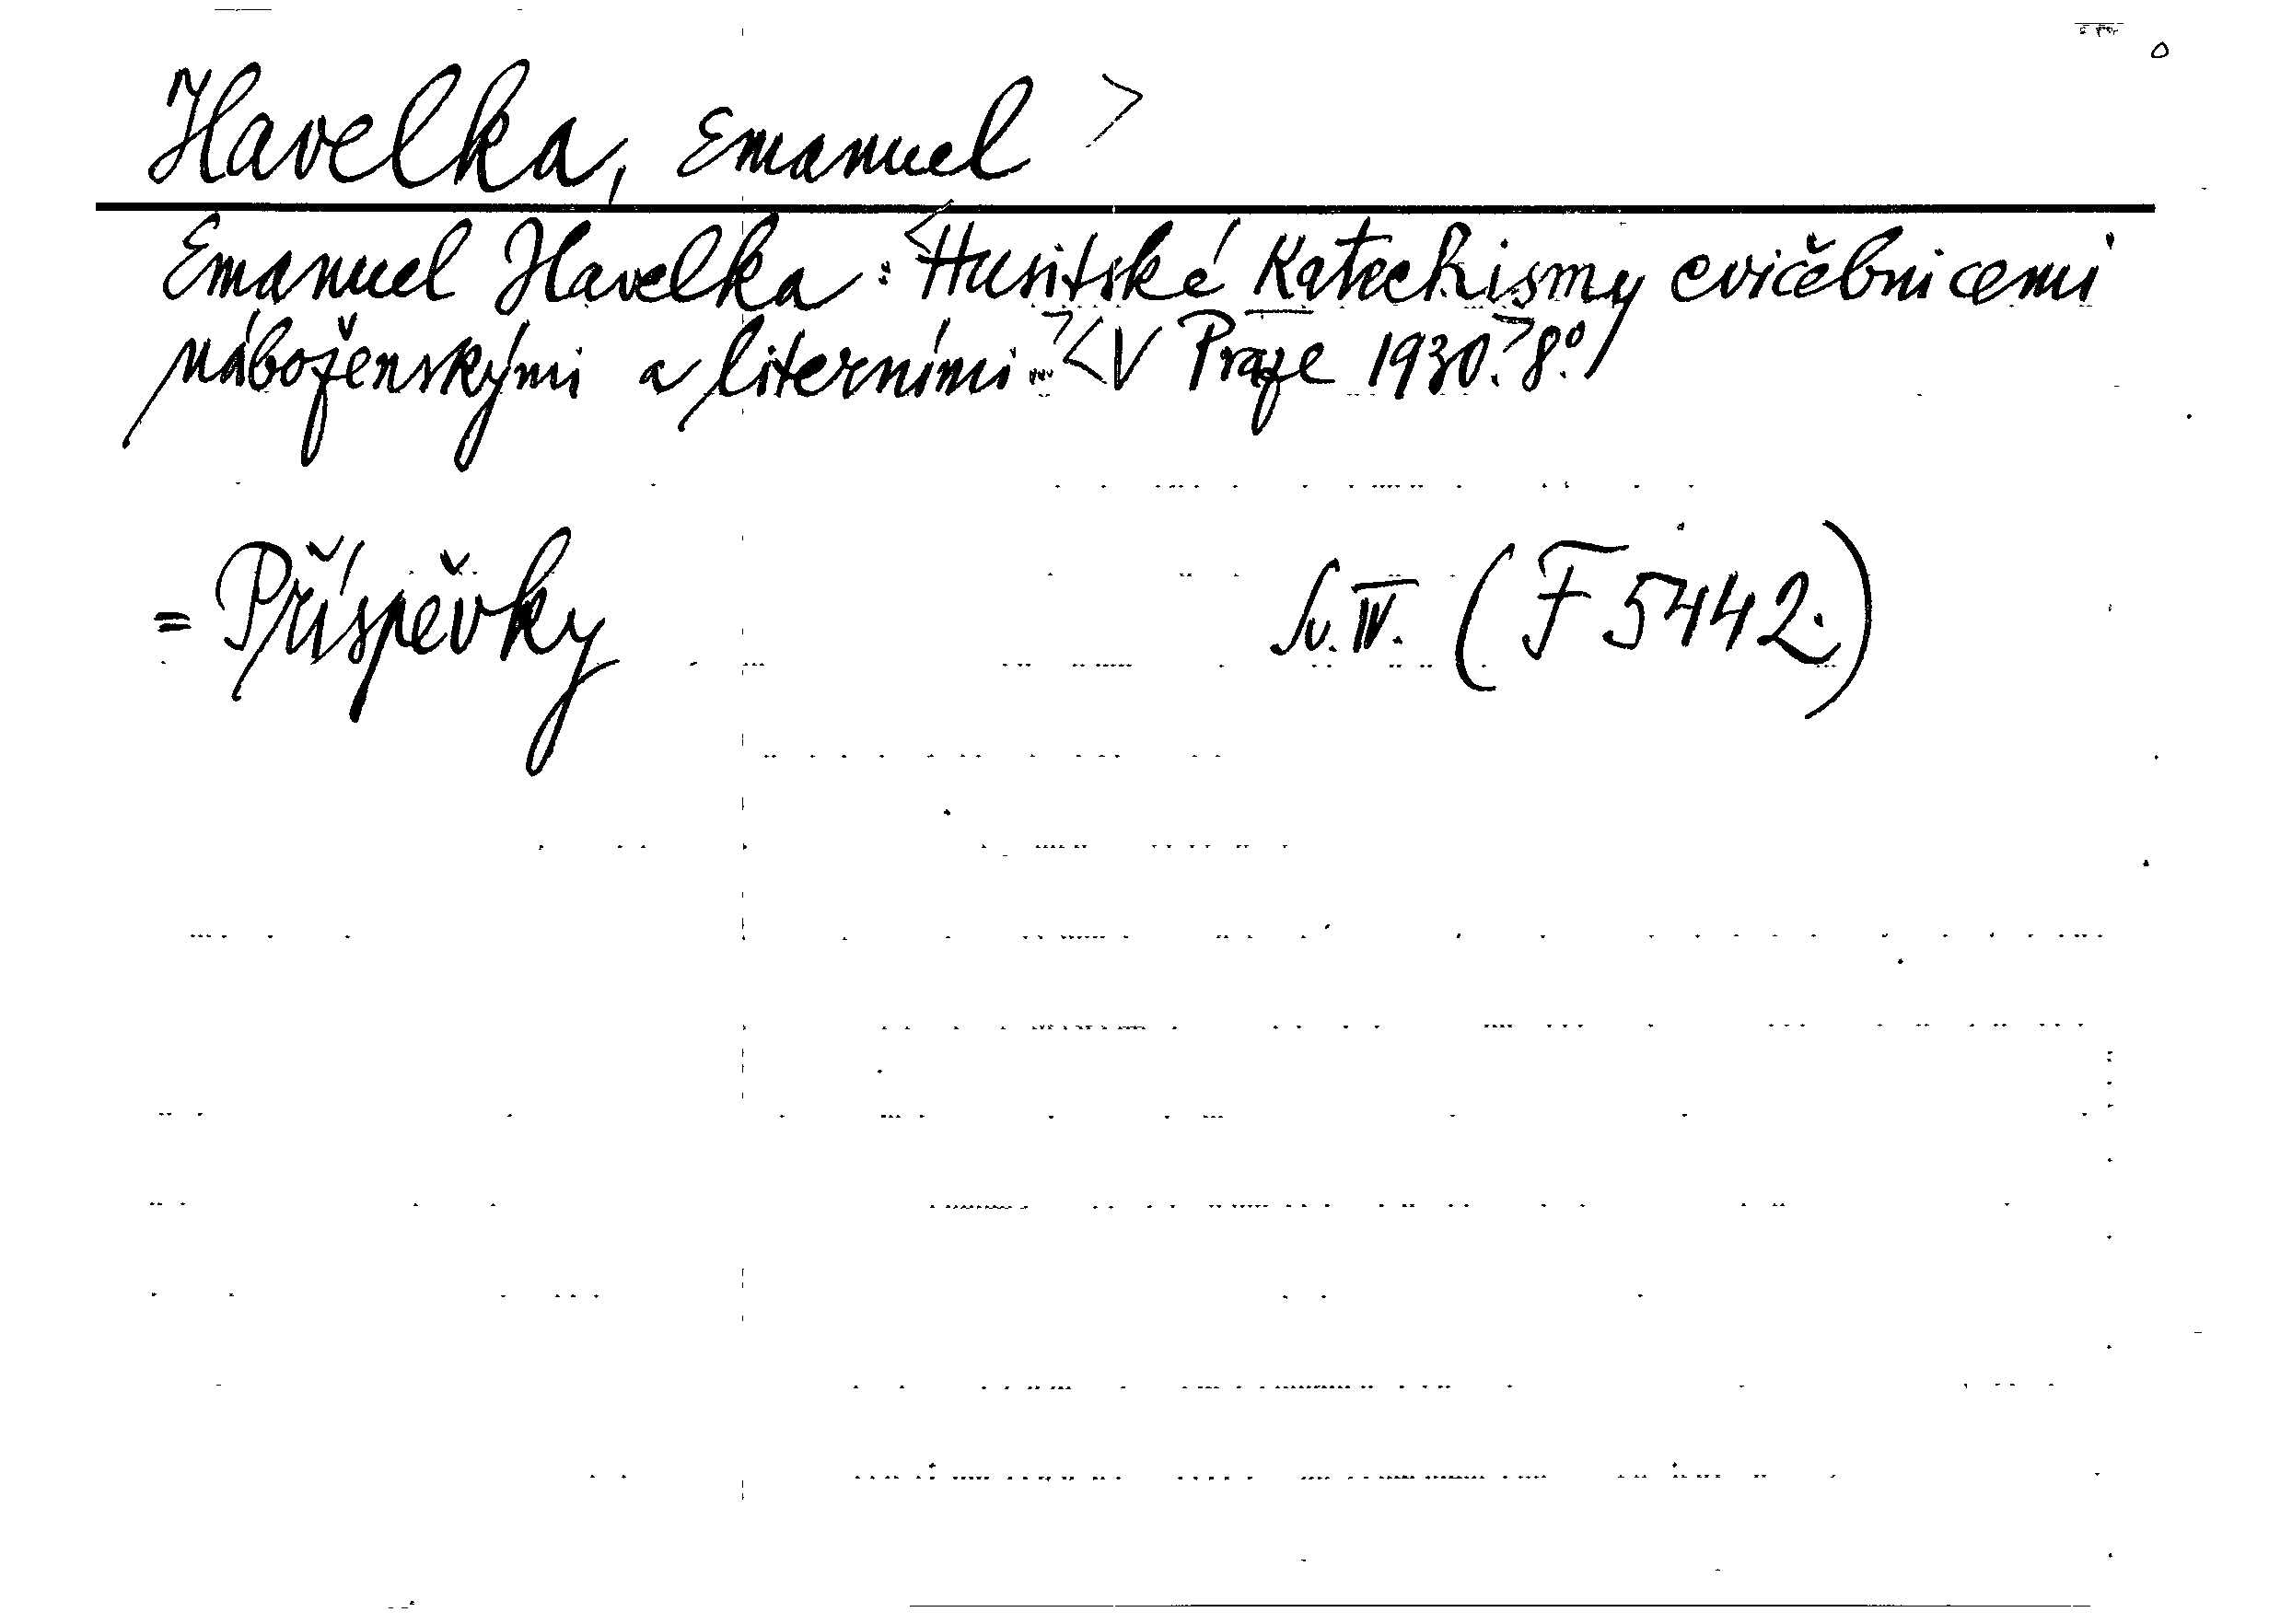 Havelka, Emanuel >
Emanuel Havelka: <Husitské Katechismy cvičebnicemi
náboženskými a literními.> <V Praze 1930.> 8.º
= Příspěvky Sv. IV. (F 5442.)